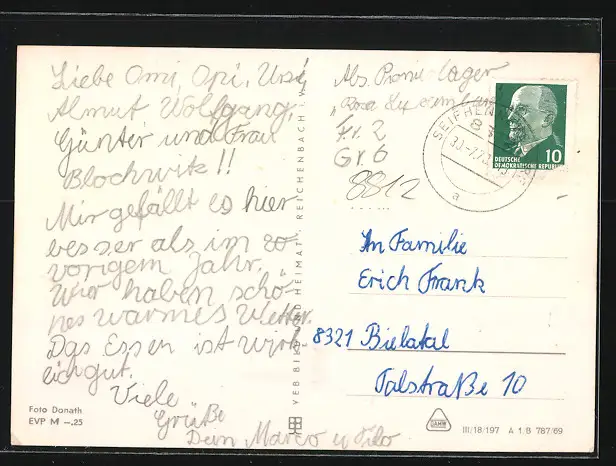 Liebe Omi, Opi, Ursi,
Almut Wolfgang,
Günter und Frau
Blochwitz!!
Mir gefällt es hier
besser als im vo-
vorigem Jahr.
Wir haben schö-
nes warmes Wetter.
Das Essen ist wirk
lich gut.
Viele
Grüße
Dein Marco u
Foto Donath
EVP M -.25
VEB BILD UND HEIMAT REICHENBACH i. V.
Abs. Pionierlager
"Rosa Luxemburg"
Kr. 2
Gr. 6
8812
SEIFHENNERSDORF
a
10
DEUTSCHE
DEMOKRATISCHE REPUBLIK
An Familie
Erich Frank
8321 Bielatal
Talstraße 10
III/18/197 A 1.B 787/69